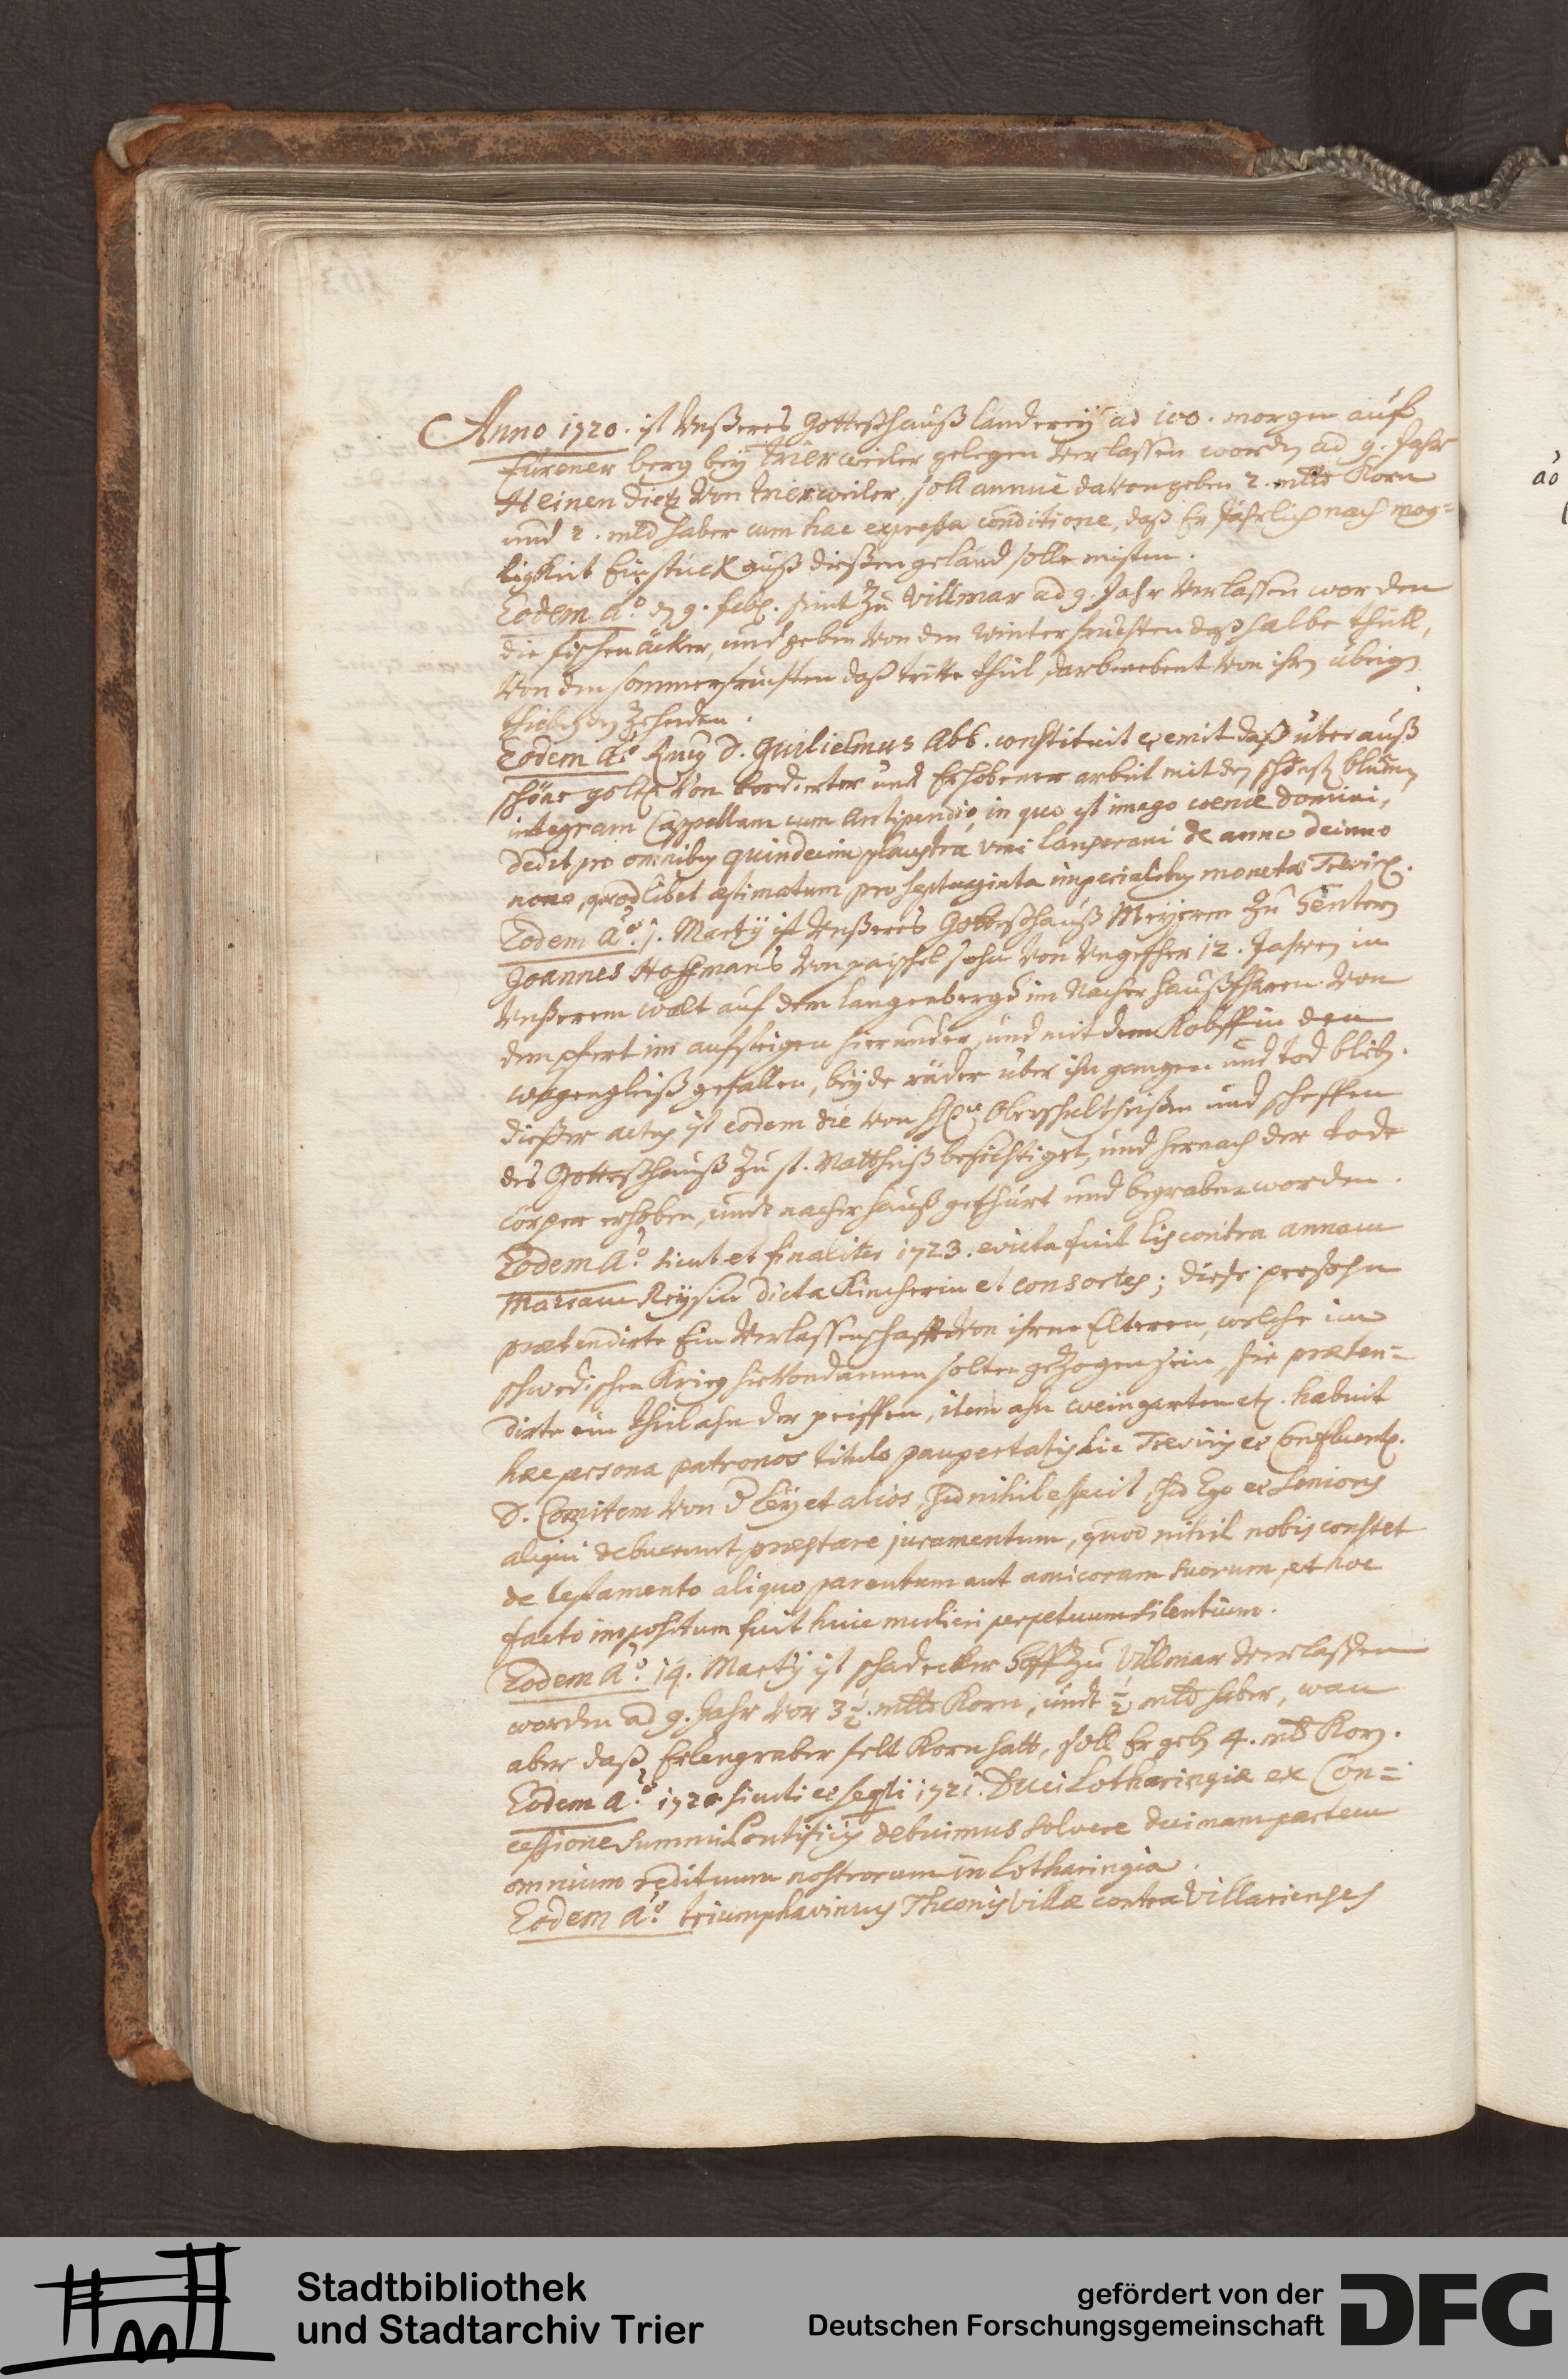 Anno 1720. ist Unßeres Gotteßhauß länderey ad 100. morgen auf
fürener berg bey Trierweiler gelegen Verlassen word ad 9. Jahr
Heinen Dietz Von Trierweiler, soll annue davon geben 2. mltd Korn
und 2. mltd haber cum hac expressa conditione, daß Er Jährlich nach mog=
ligkeit Ein stück auß dießen geländ solle misten.
Eodem aō. d 9. feb. seint Zu Villmar ad 9. Jahr Verlassen worden
die fischen äcker, und geben Von den Winterfruchten daß halbe theill,
Von den sommerfruchten daß tritte theil, darbenebent Von ihr übrig
den Zehenden.
Eodem aō. D. Guilielmus Abb. constituit et emit daß über auß
schöne Von bordierter und Erhobener arbeit mit den blum
integram Cappellam cum Antipendio, in quo est imago coenæ domini,
dedit pro omnibus quindecim plaustra vini de anno decimo
nono, quodlibet æstimatum pro septuaginta imperialibus monetæ Trevir.
Eodem aō. 1. Martÿ ist Unßeres Gotteßhauß Meyeren Zu Senteren
Joannes Hoffmans Von paschel sohn Von Ungefher 12. Jahren in
Unßerem walt auf dem langenbergh im Nacher haußfharen Von
dem pfert im aufsteigen hierunder, und mit dem Kobff in den
wagengleiß gefallen, beyde räder über ihn gangen und tod blieb.
dießer actus ist eodem die Von H. Oberschultheißen und scheffen
des Gotteßhauß Zu st. Mattheiß besichtiget, und hernach der tode
cörper erhoben, undt nacher hauß gefhürt und begraben worden.
Eodem aō. sicut et finaliter 1723. evicta fuit lis contra annam
Mariam Reysin dicta Kircherin et consortes; diese persohn
prætendirte Ein Verlassenschafft Von ihren Elteren, welche im
schwedischen Krieg hieVondannen solten geZogen sein, sie præten=
dirte ein theil ahn der peiffen, item ahn weingarten etc. habuit
hæc persona patronos titulo paupertatis hic Treviris et Confluent.
D. Comitem Von d Leÿ et alios, sed nihil effecit, sed Ego et Seniores
aliqui debuerunt præstare juramentum, quod nihil nobis constet
de testamento aliquo parentum aut amicorum suorum, et hoc
facto impositum fuit huic mulieri perpetuum silentium.
Eodem aō. 14. Martÿ ist schadecker hoff Zu Villmar Verlaßen
worden ad 9. Jahr Vor 3½. mltd Korn, undt ½ mltd haber, wan
aber daß Erlengraber felt Korn hatt, soll Er geb 4. mltd Kor.
Eodem aō. 1720 sicuti et seqti 1721. Duci Lotharingiæ ex Con=
cessione Summi Pontificis debuimus solvere decimam partem
omnium redituum nostrorum in Lotharingia.
Eodem aō. triumphavimus Theonisvillæ contra Villarienses
aō
Stadtbibliothek
und Stadtarchiv Trier
gefördert von der
Deutschen Forschungsgemeinschaft
DFG